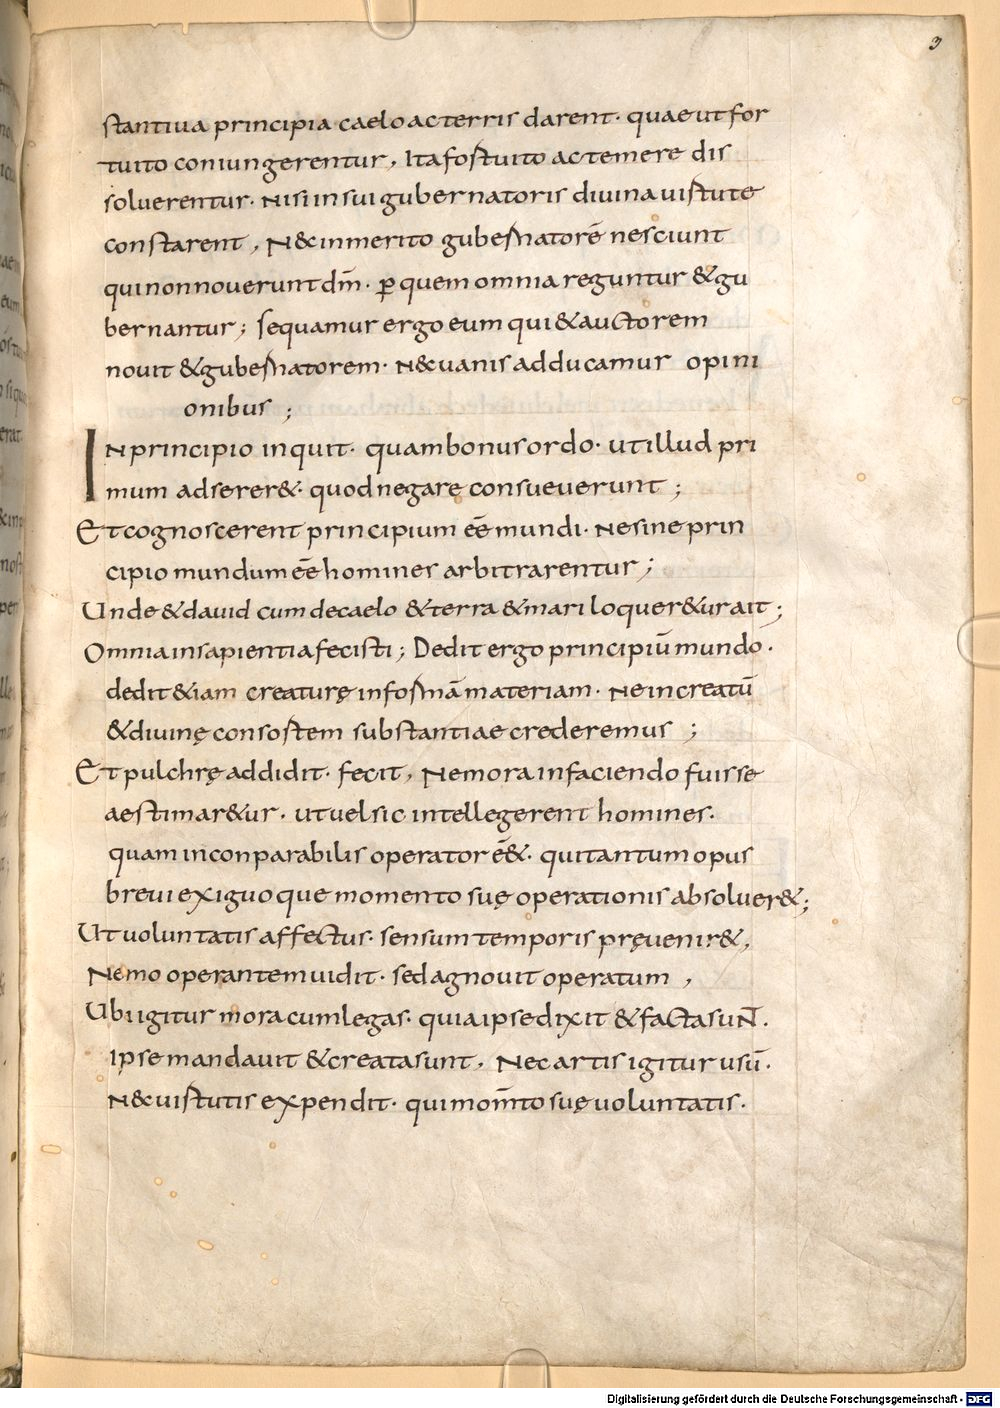 3
stantiua principia caelo ac terris darent· quae ut for
tuito coniungerentur, Ita fortuito ac temere dis
soluerentur· Nisi in sui gubernatoris diuina uirtute
constarent, N& inmerito gubernatorē nesciunt
qui non nouerunt dm̄· ꝑ quem omnia reguntur & gu
bernantur; sequamur ergo eum qui & auctorem
nouit & gubernatorem· N& uanis adducamur opini
onibus;
IN principio inquit· quam bonus ordo· ut illud pri
mum adserer&· quod negare consueuerunt;
Et cognoscerent principium eē mundi· Ne sine prin
cipio mundum eē homines arbitrarentur;
Unde & dauid cum de caelo & terra & mari loquer&ur ait;
Omnia in sapientia fecisti; Dedit ergo principiū mundo·
dedit & iam creaturę infor̄mā materiam· Ne increatū
& diuinę consortem substantiae crederemus;
Et pulchrę addidit· fecit, Ne mora in faciendo fuisse
aestimar&ur· ut uel sic intellegerent homines·
quam inconparabilis operator eē&· qui tantum opus
breui exiguoque momento suę operationis absoluer&;
Ut uoluntatis affectus· sensum temporis pręuenir&,
Nemo operantem uidit· sed agnouit operatum,
Ubi igitur mora cum legas· quia ipse dixit & facta suNT·
ipse mandauit & creata sunt, Nec artis igitur usū·
N& uirtutis expendit· qui mom̄to suę uoluntatis·
Digitalisierung gefördert durch die Deutsche Forschungsgemeinschaft - DFG